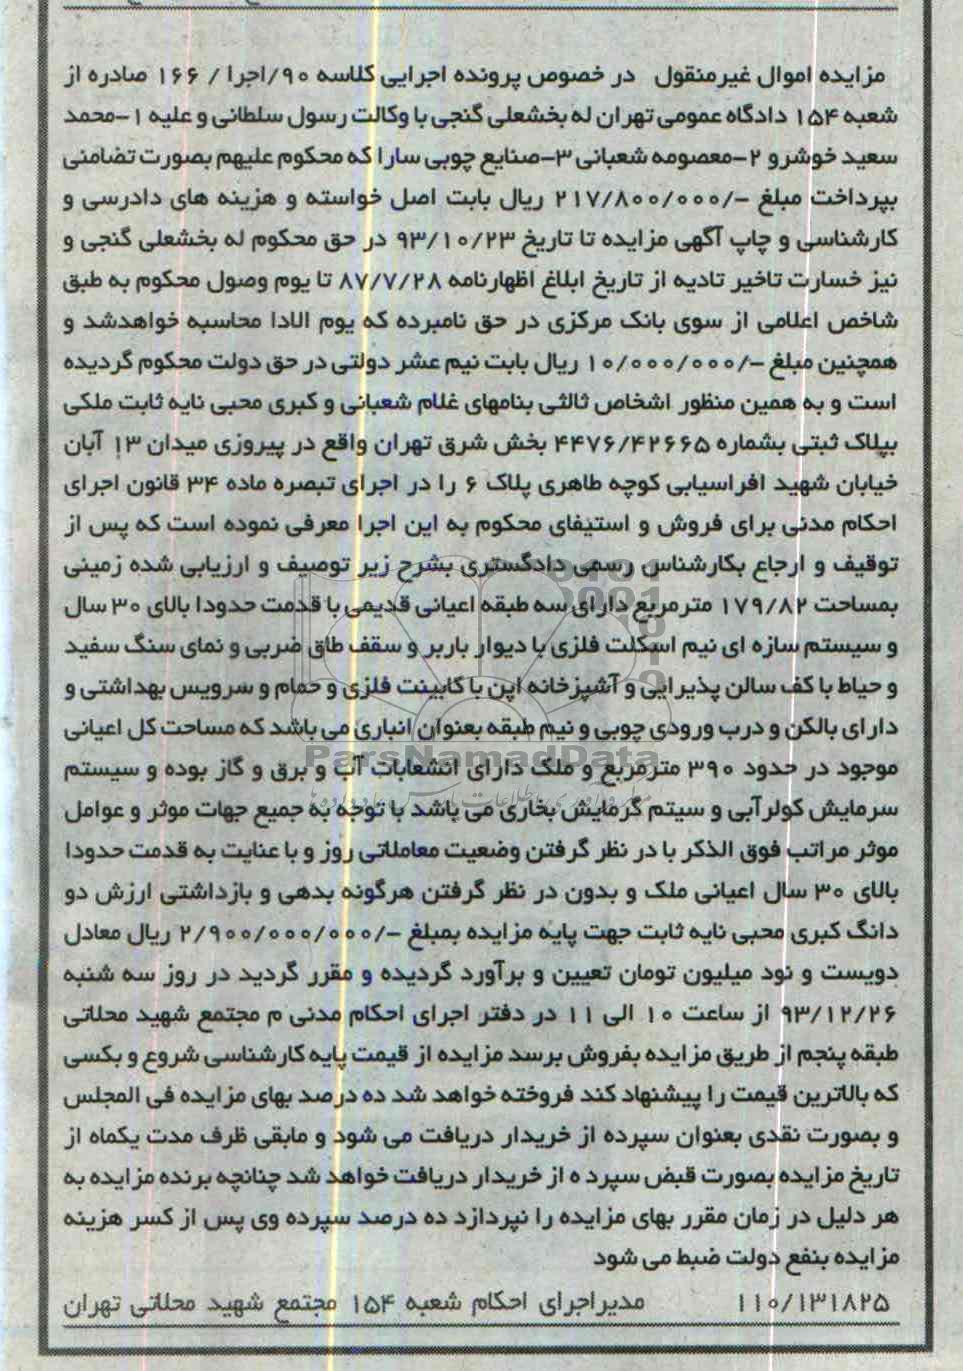 مزایده اموال غیرمنقول در خصوص پرونده اجرایی کلاسه ۹۰/اجرا / ۱۶۶ صادره از
شعبه ۱۵۴ دادگاه عمومی تهران له بخشعلی گنجی با وکالت رسول سلطانی و علیه ۱-محمد
سعید خوشرو ۲-معصومه شعبانی ۳-صنایع چوبی سارا که محکوم علیهم بصورت تضامنی
بپرداخت مبلغ -/۲۱۷/۸۰۰/۰۰۰ ریال بابت اصل خواسته و هزینه های دادرسی و
کارشناسی و چاپ آگهی مزایده تا تاریخ ۹۳/۱۰/۲۳ در حق محکوم له بخشعلی گنجی و
نیز خسارت تاخیر تادیه از تاریخ ابلاغ اظهارنامه ۸۷/۷/۲۸ تا یوم وصول محکوم به طبق
شاخص اعلامی از سوی بانک مرکزی در حق نامبرده که یوم الادا محاسبه خواهدشد و
همچنین مبلغ -/۱۰/۰۰۰/۰۰۰ ریال بابت نیم عشر دولتی در حق دولت محکوم گردیده
است و به همین منظور اشخاص ثالثی بنامهای غلام شعبانی و کبری محبی نایه ثابت ملکی
بپلاک ثبتی بشماره ۴۴۷۶/۴۲۶۶۵ بخش شرق تهران واقع در پیروزی میدان ۱۳ آبان
خیابان شهید افراسیابی کوچه طاهری پلاک ۶ را در اجرای تبصره ماده ۳۴ قانون اجرای
احکام مدنی برای فروش و استیفای محکوم به این اجرا معرفی نموده است که پس از
توقیف و ارجاع بکارشناس رسمی دادگستری بشرح زیر توصیف و ارزیابی شده زمینی
بمساحت ۱۷۹/۸۲ مترمربع دارای سه طبقه اعیانی قدیمی با قدمت حدودا بالای ۳۰ سال
و سیستم سازه ای نیم اسکلت فلزی با دیوار باربر و سقف طاق ضربی و نمای سنگ سفید
و حیاط با کف سالن پذیرایی و آشپزخانه اپن با کابینت فلزی و حمام و سرویس بهداشتی و
دارای بالکن و درب ورودی چوبی و نیم طبقه بعنوان انباری می باشد که مساحت کل اعیانی
ParsNamadData
موجود در حدود ۳۹۰ مترمربع و ملک دارای انشعابات آب و برق و گاز بوده و سیستم
سرمایش کولرآبی و سیتم گرمایش بخاری می باشد با توجه به جمیع جهات موثر و عوامل
موثر مراتب فوق الذکر با در نظر گرفتن وضعیت معاملاتی روز و با عنایت به قدمت حدودا
بالای ۳۰ سال اعیانی ملک و بدون در نظر گرفتن هرگونه بدهی و بازداشتی ارزش دو
دانگ کبری محبی نایه ثابت جهت پایه مزایده بمبلغ -/۲/۹۰۰/۰۰۰/۰۰۰ ریال معادل
دویست و نود میلیون تومان تعیین و برآورد گردیده و مقرر گردید در روز سه شنبه
۹۳/۱۲/۲۶ از ساعت ۱۰ الی ۱۱ در دفتر اجرای احکام مدنی م مجتمع شهید محلاتی
طبقه پنجم از طریق مزایده بفروش برسد مزایده از قیمت پایه کارشناسی شروع و بکسی
که بالاترین قیمت را پیشنهاد کند فروخته خواهد شد ده درصد بهای مزایده فی المجلس
و بصورت نقدی بعنوان سپرده از خریدار دریافت می شود و مابقی ظرف مدت یکماه از
تاریخ مزایده بصورت قبض سپرد ه از خریدار دریافت خواهد شد چنانچه برنده مزایده به
هر دلیل در زمان مقرر بهای مزایده را نپردازد ده درصد سپرده وی پس از کسر هزینه
مزایده بنفع دولت ضبط می شود
۱۱۰/۱۳۱۸۲۵ مدیراجرای احکام شعبه ۱۵۴ مجتمع شهید محلاتی تهران